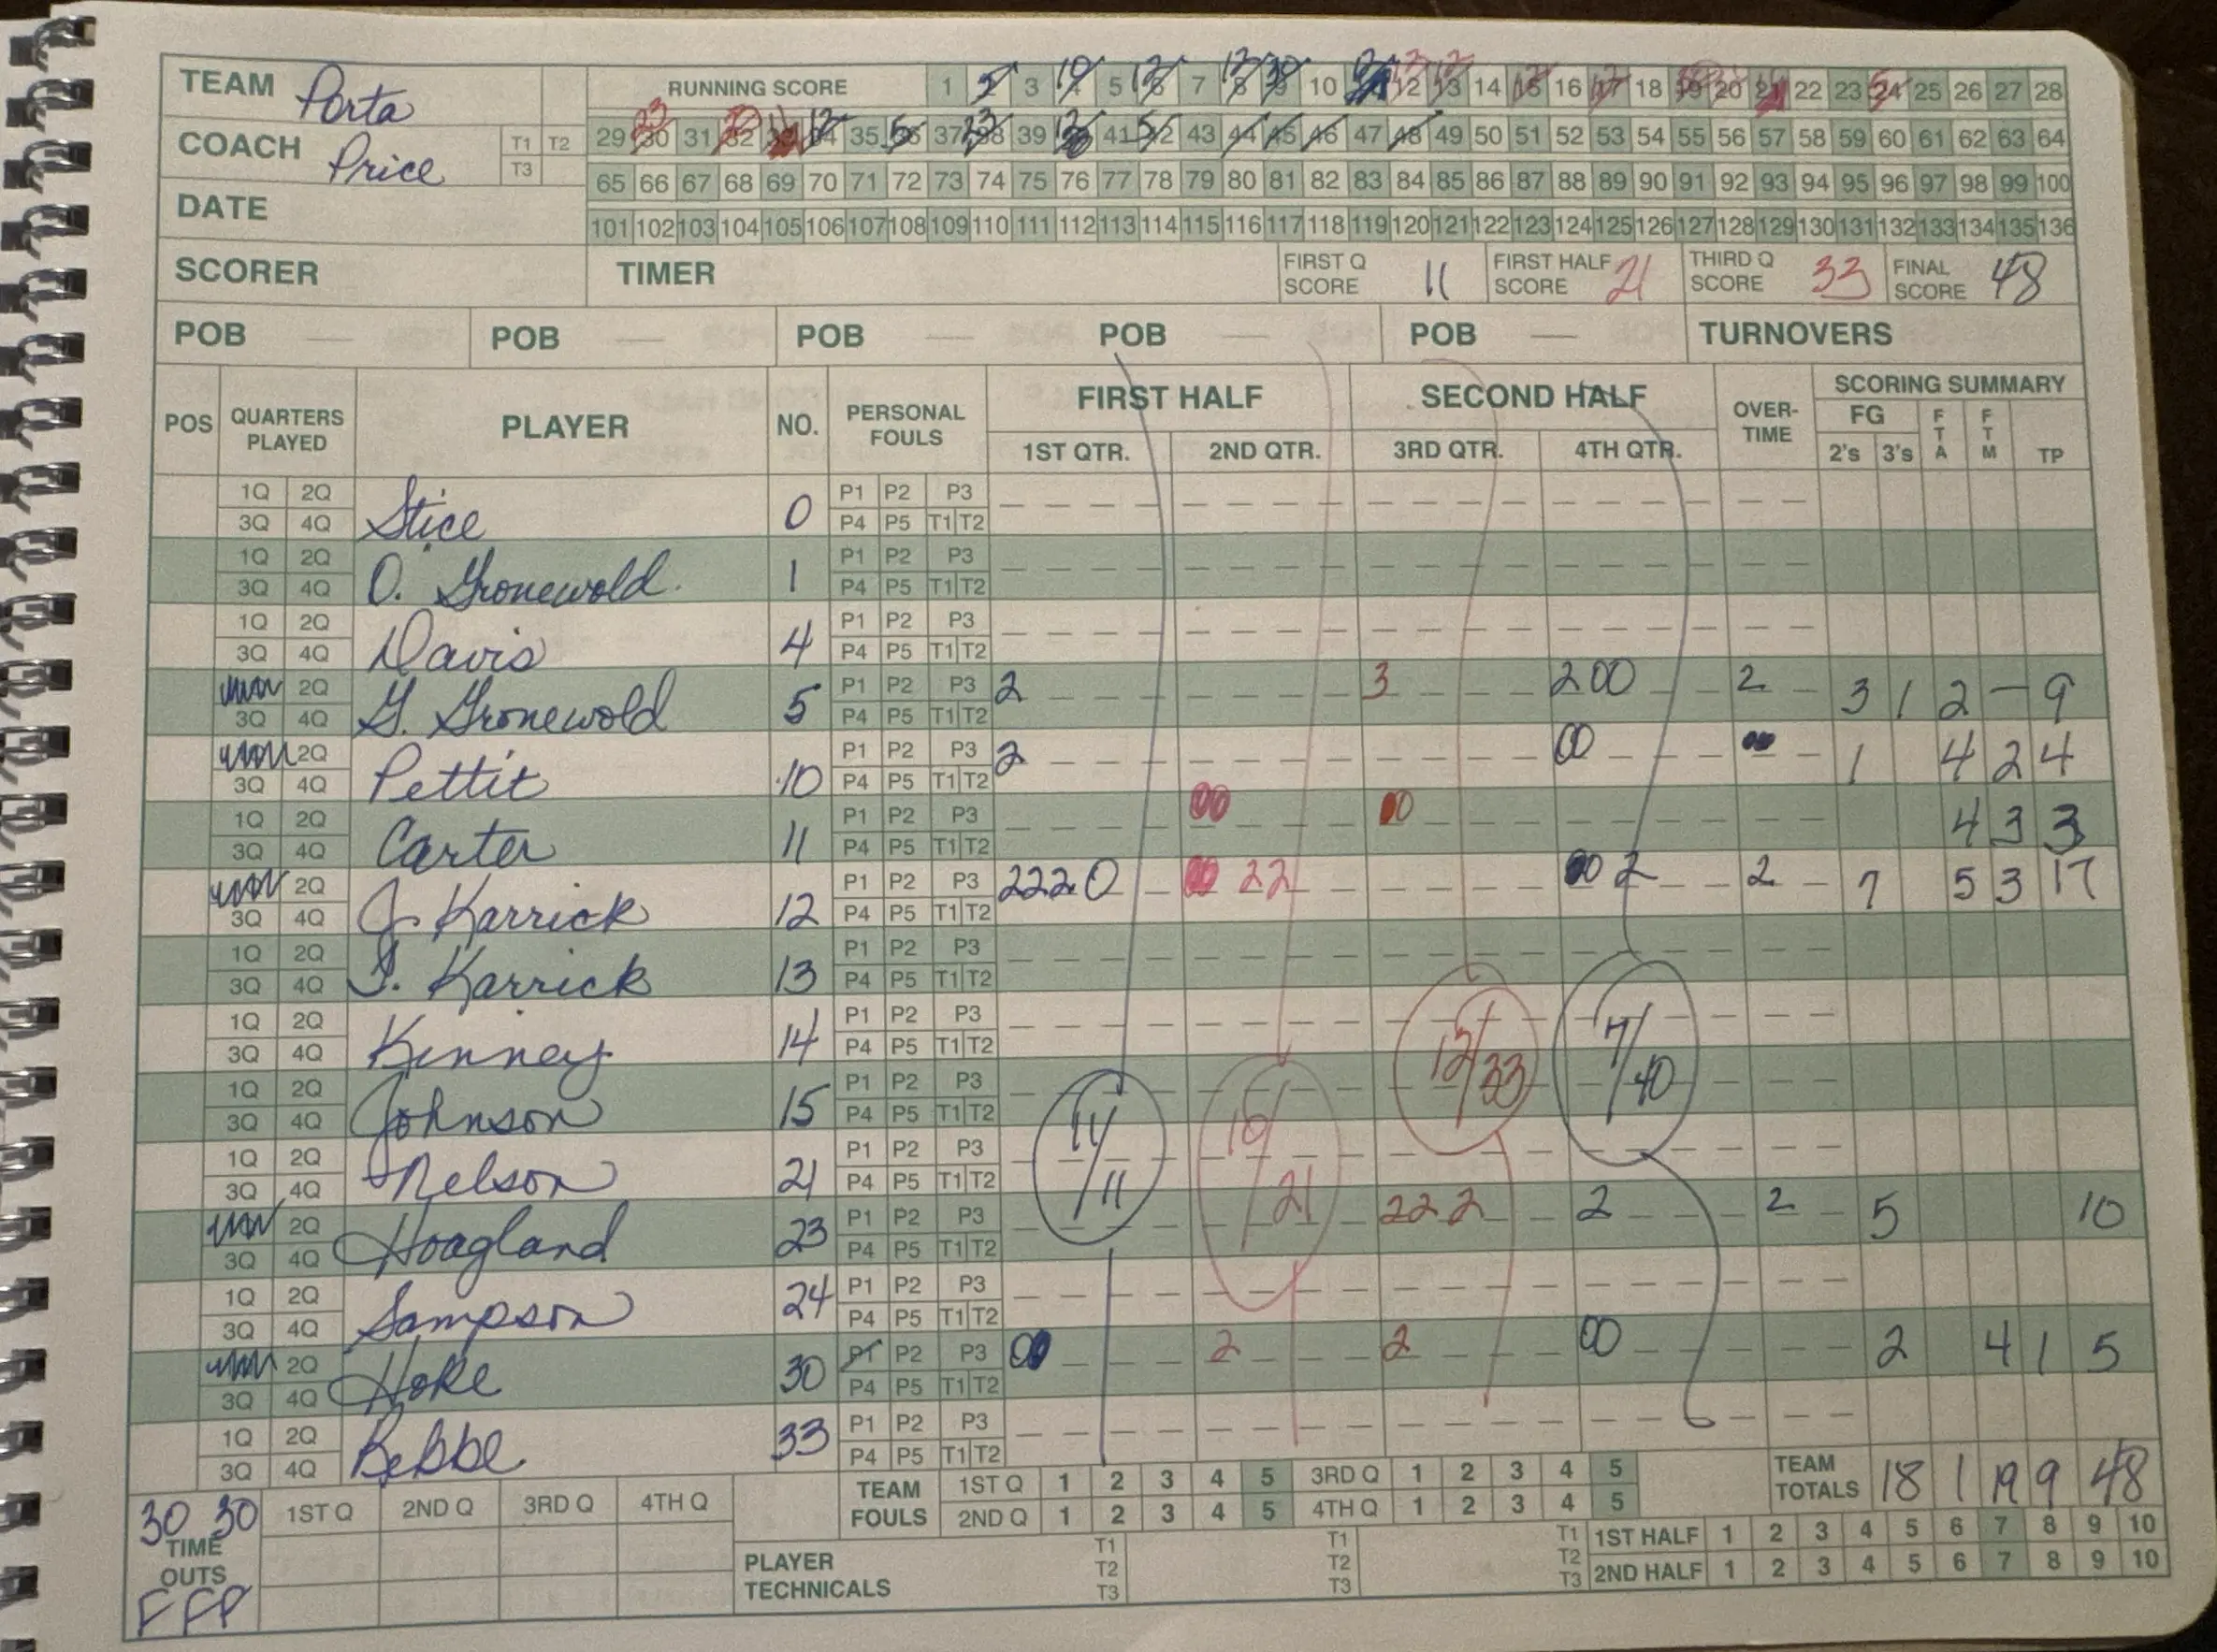 TEAM Porta RUNNING SCORE 1 2 3 4 5 6 7 8 9 10 11 12 13 14 15 16 17 18 19 20 21 22 23 24 25 26 27 28
COACH Price T1 T2 T3 29 30 31 32 33 34 35 36 37 38 39 40 41 42 43 44 45 46 47 48 49 50 51 52 53 54 55 56 57 58 59 60 61 62 63 64
65 66 67 68 69 70 71 72 73 74 75 76 77 78 79 80 81 82 83 84 85 86 87 88 89 90 91 92 93 94 95 96 97 98 99 100
DATE 101 102 103 104 105 106 107 108 109 110 111 112 113 114 115 116 117 118 119 120 121 122 123 124 125 126 127 128 129 130 131 132 133 134 135 136
SCORER TIMER FIRST Q SCORE 11 FIRST HALF SCORE 21 THIRD Q SCORE 33 FINAL SCORE 48
POB — POB — POB — POB — POB — TURNOVERS
POS QUARTERS PLAYED PLAYER NO. PERSONAL FOULS FIRST HALF SECOND HALF OVER-TIME SCORING SUMMARY
1ST QTR. 2ND QTR. 3RD QTR. 4TH QTR. FG 2's 3's FTA FTM TP
1Q 2Q 3Q 4Q Stice 0 P1 P2 P3 P4 P5 T1 T2
1Q 2Q 3Q 4Q O. Gronewold 1 P1 P2 P3 P4 P5 T1 T2
1Q 2Q 3Q 4Q Davis 4 P1 P2 P3 P4 P5 T1 T2
2Q 3Q 4Q G. Gronewold 5 P1 P2 P3 P4 P5 T1 T2 2 3 2 0 0 2 3 1 2 — 9
2Q 3Q 4Q Pettit 10 P1 P2 P3 P4 P5 T1 T2 2 0 0 0 0 1 4 2 4
1Q 2Q 3Q 4Q Carter 11 P1 P2 P3 P4 P5 T1 T2 0 0 0 0 4 3 3
2Q 3Q 4Q J. Karrick 12 P1 P2 P3 P4 P5 T1 T2 2 2 2 0 0 0 2 2 0 0 2 2 7 5 3 17
1Q 2Q 3Q 4Q Karrick 13 P1 P2 P3 P4 P5 T1 T2
1Q 2Q 3Q 4Q Kinney 14 P1 P2 P3 P4 P5 T1 T2
1Q 2Q 3Q 4Q Johnson 15 P1 P2 P3 P4 P5 T1 T2 12/33 7/40
1Q 2Q 3Q 4Q Nelson 21 P1 P2 P3 P4 P5 T1 T2 11/11 10/21
2Q 3Q 4Q Hoagland 23 P1 P2 P3 P4 P5 T1 T2 2 2 2 2 2 5 10
1Q 2Q 3Q 4Q Sampson 24 P1 P2 P3 P4 P5 T1 T2
2Q 3Q 4Q Hoke 30 P1 P2 P3 P4 P5 T1 T2 0 0 2 2 0 0 2 4 1 5
1Q 2Q 3Q 4Q 33 P1 P2 P3 P4 P5 T1 T2
30 30 TIME OUTS 1ST Q 2ND Q 3RD Q 4TH Q
TEAM FOULS 1ST Q 1 2 3 4 5 3RD Q 1 2 3 4 5 TEAM TOTALS 18 1 19 9 48
2ND Q 1 2 3 4 5 4TH Q 1 2 3 4 5
PLAYER TECHNICALS T1 T2 T3 T1 T2 T3 T1 T2 T3 1ST HALF 1 2 3 4 5 6 7 8 9 10
2ND HALF 1 2 3 4 5 6 7 8 9 10